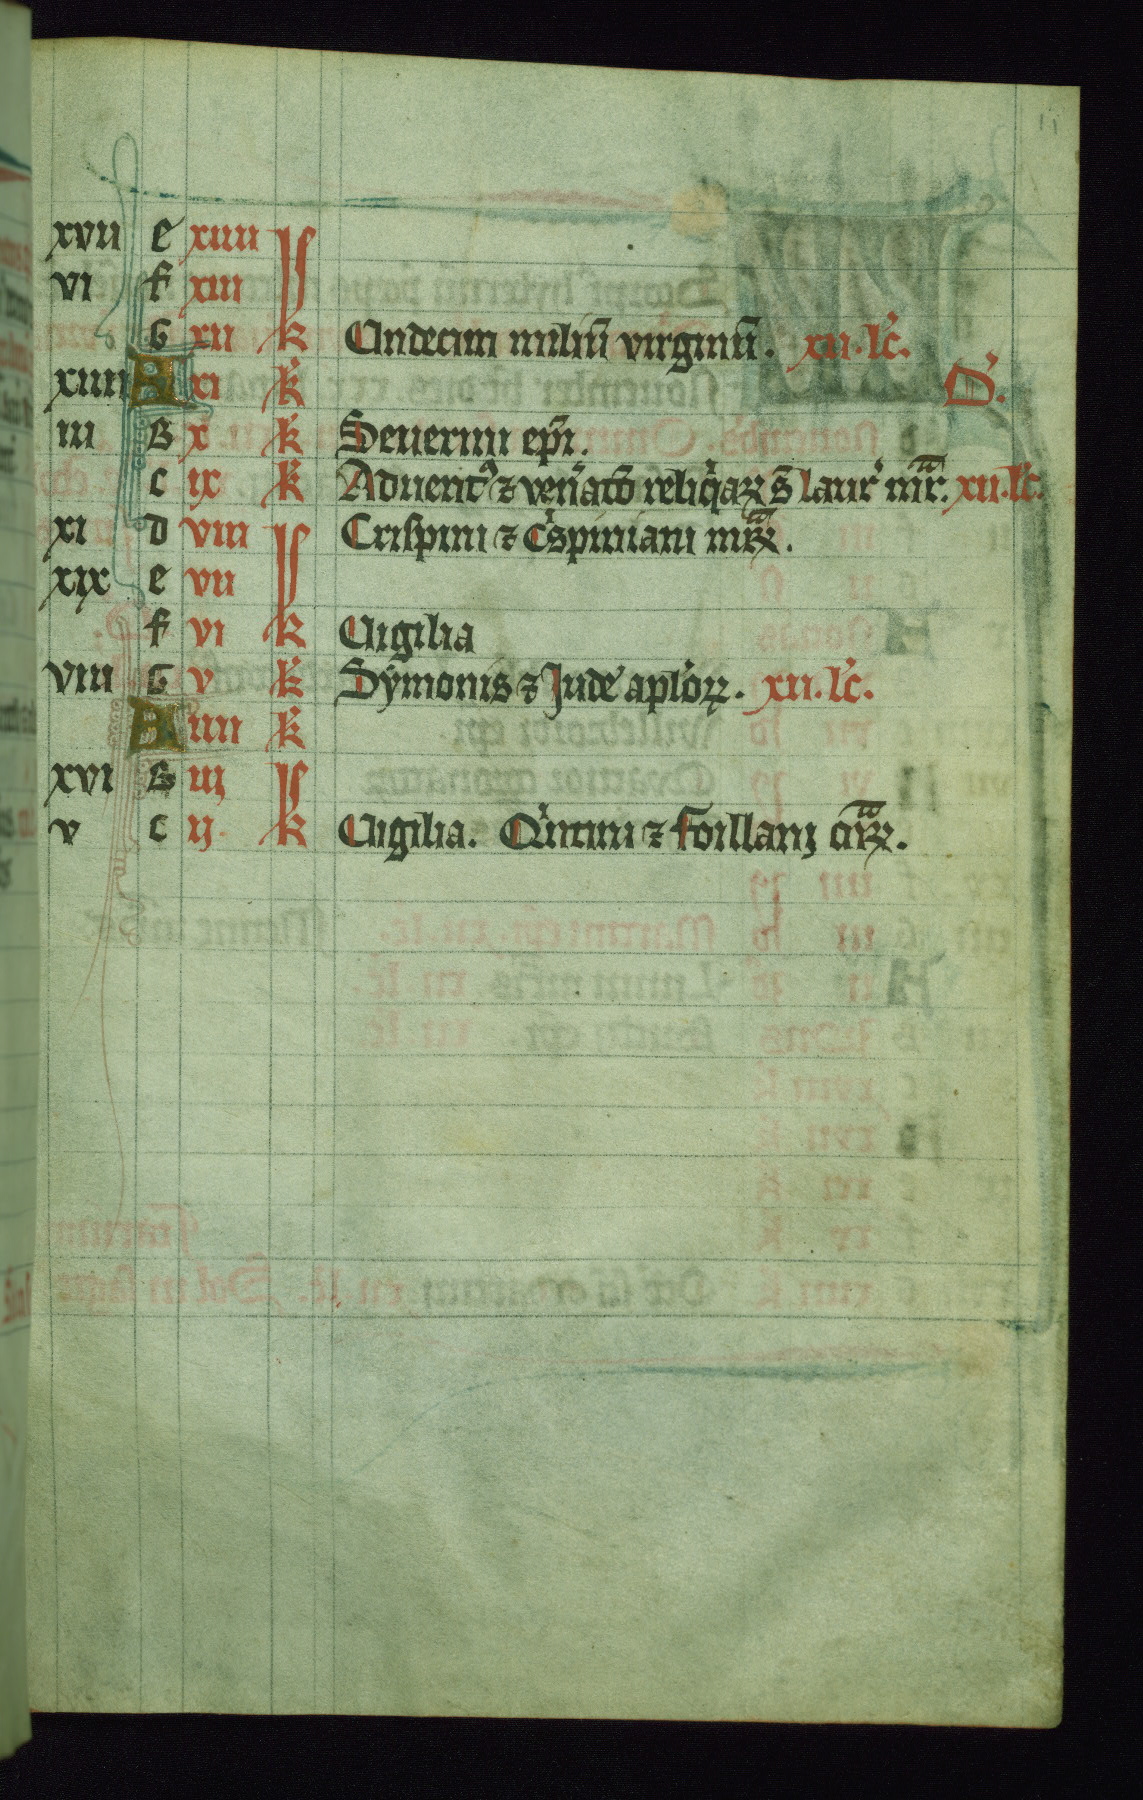 11
xvii e xiiii
vi f xiii
G xii k Undecim miliū virginū. xii. lc̄.
xiiii A xi k D.
iii B x k Seuerini ep̄i.
c ix k Aduent⁹ ⁊ ven̄atō reliq̄aꝝ s̄ laur' mr̄. xii. lc̄.
xi d viii Crispini ⁊ cͥspiniani mr̄ꝝ.
xix e vii
f vi k Uigilia
viii G v k Sẏmonis ⁊ Jude apl'oꝝ. xii. lc̄.
A iiii k
xvi B iij
v c ij. k Uigilia. Qͥntini ⁊ foillanj mr̄ꝝ.